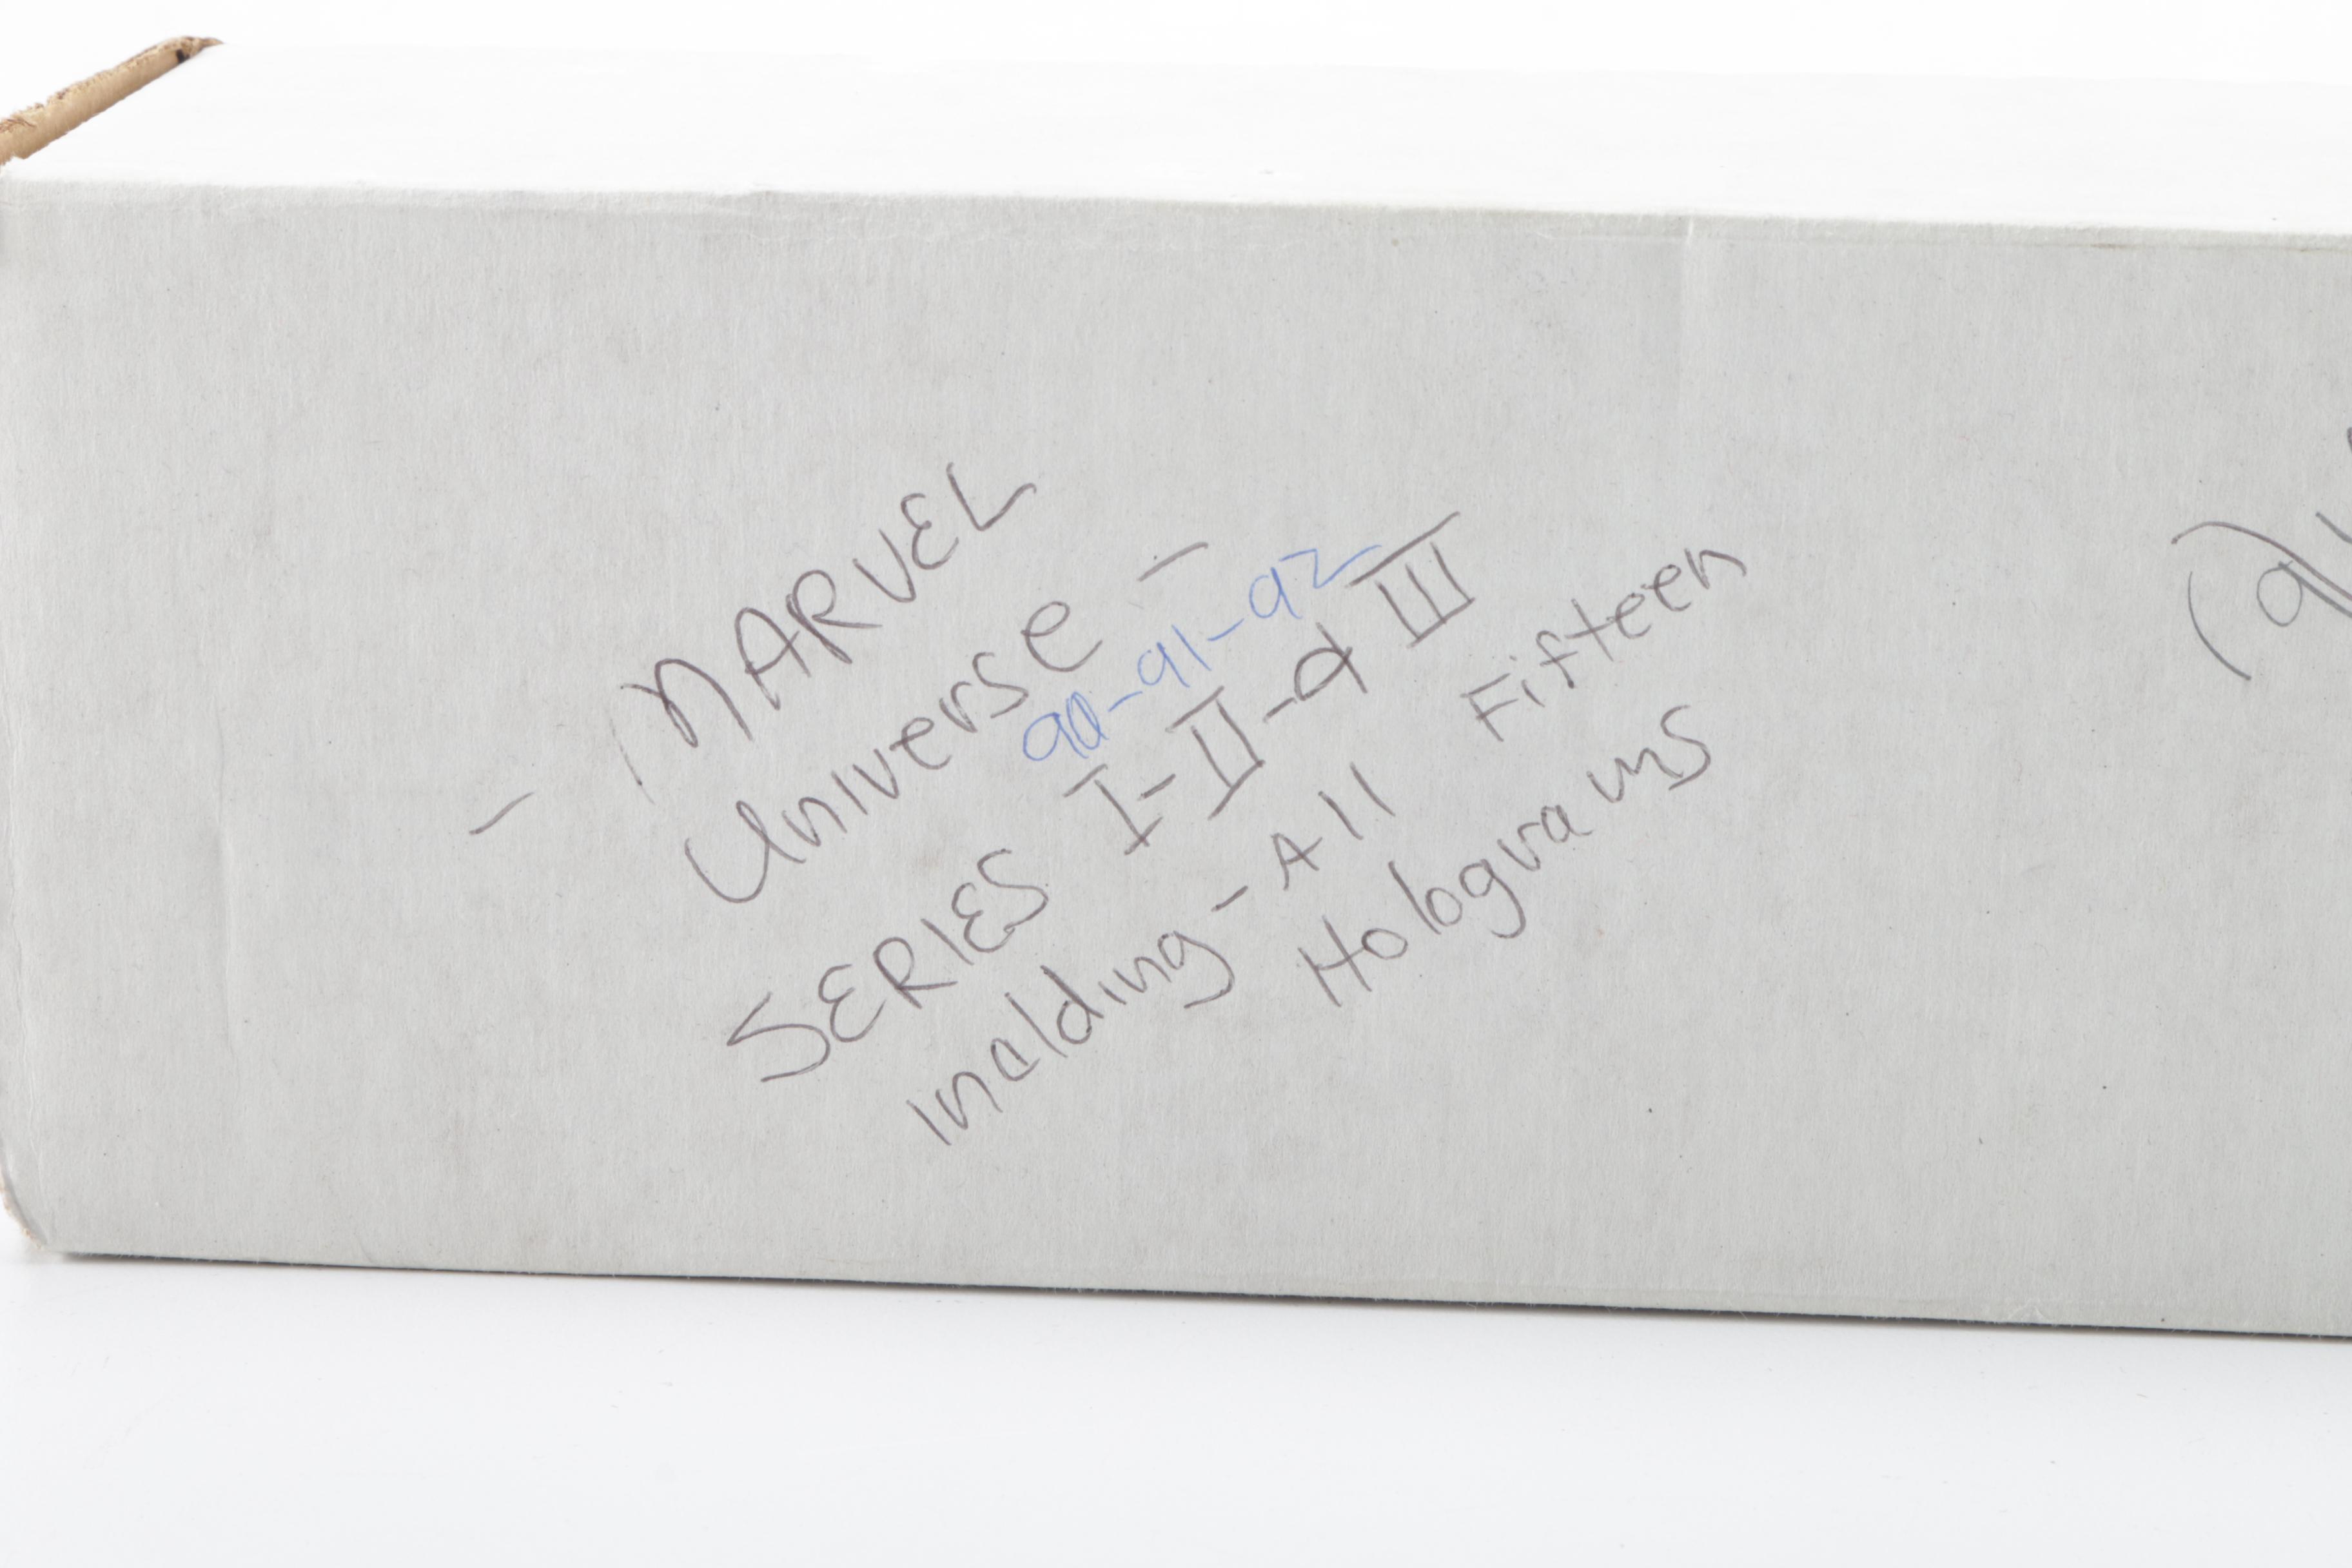 - MARVEL
Universe -
90-91-92
SERIES I-II-& III
Inclding - All Fifteen
Holograms